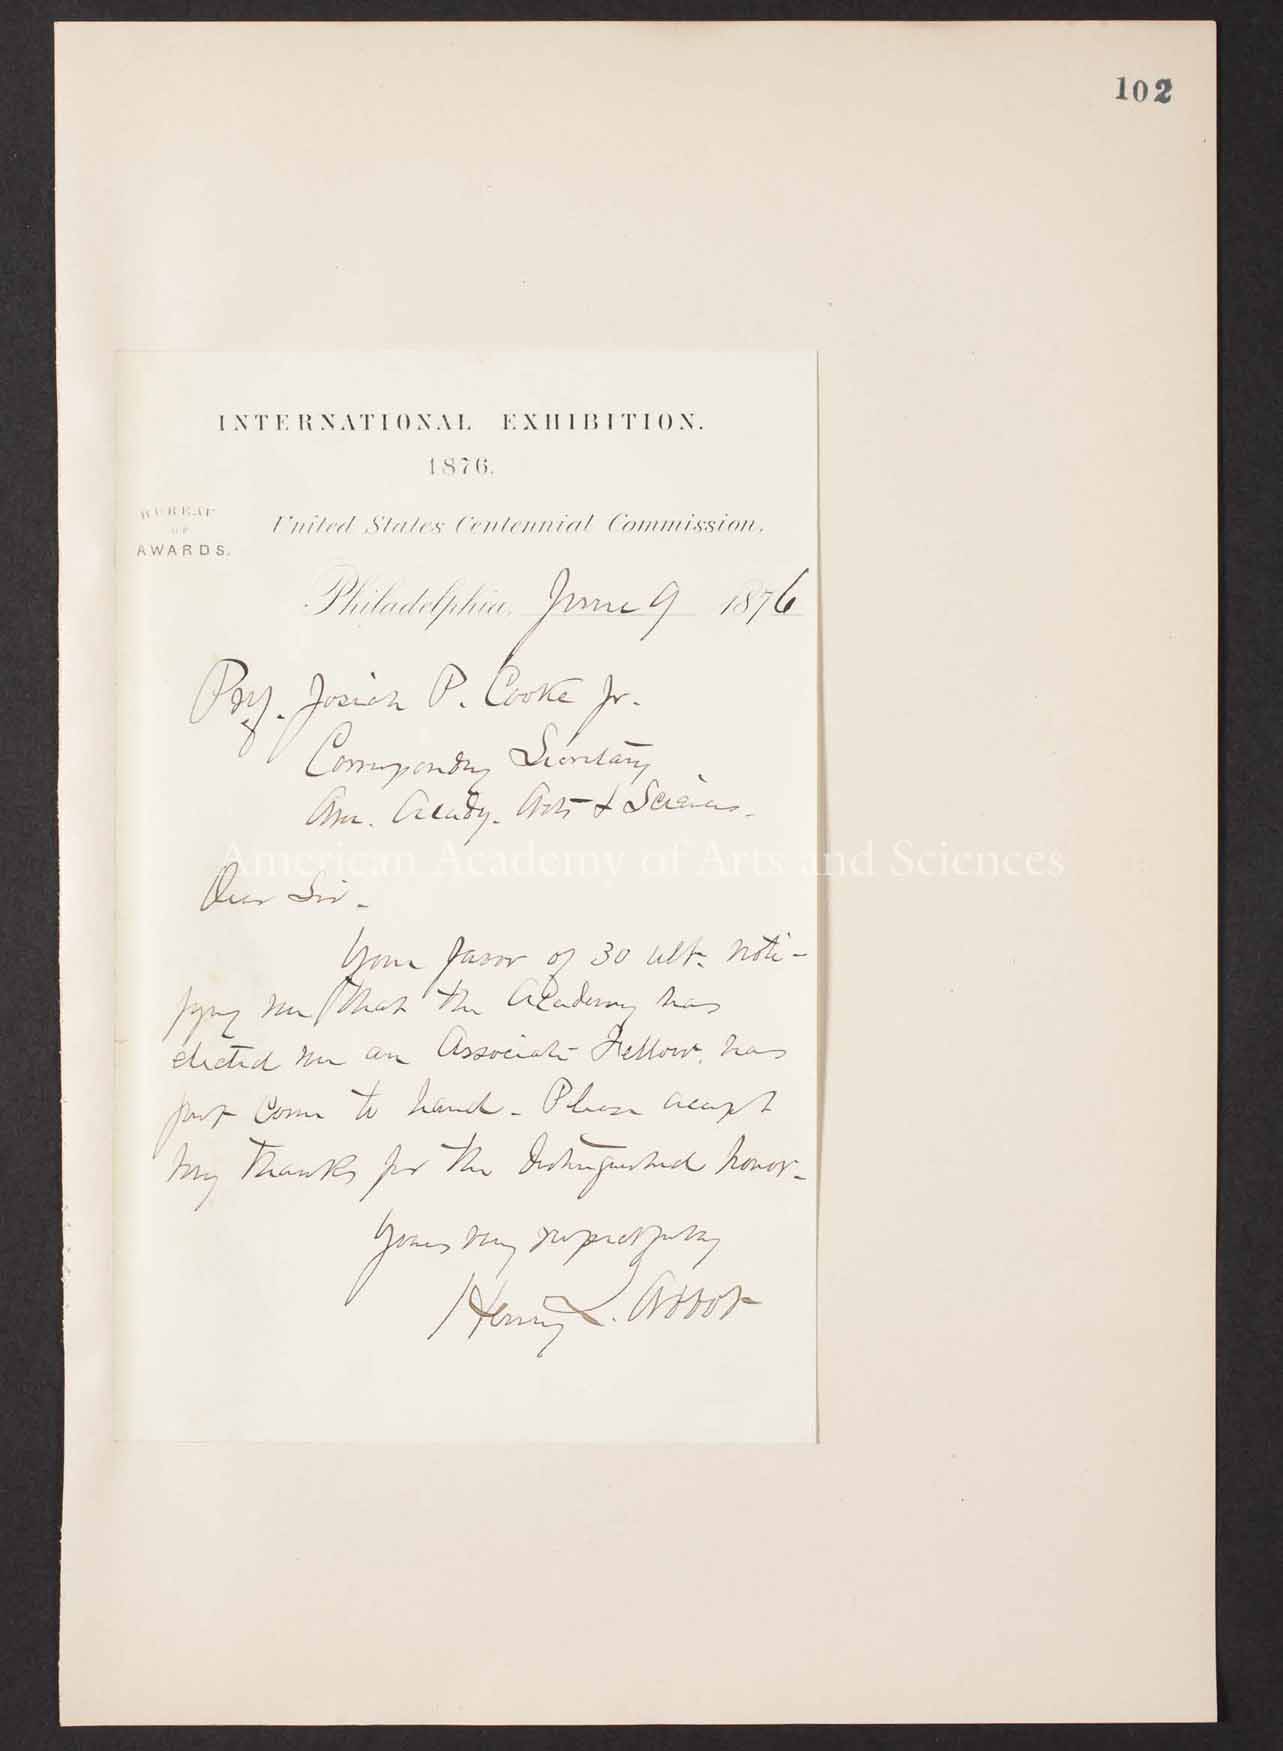 102
INTERNATIONAL EXHIBITION.
1876.
BUREAU
OF
AWARDS.
United States Centennial Commission.
Philadelphia, June 9 1876
Prof. Josiah P. Cooke Jr.
Corresponding Secretary
Am. Acady. Arts & Sciences.
American Academy of Arts and Sciences
Dear Sir -
Your favor of 30 ult. noti-
fying me that the Academy has
elected me an Associate Fellow, has
just come to hand - Please accept
my thanks for the distinguished honor -
Yours very respectfully
Henry L. Abbot